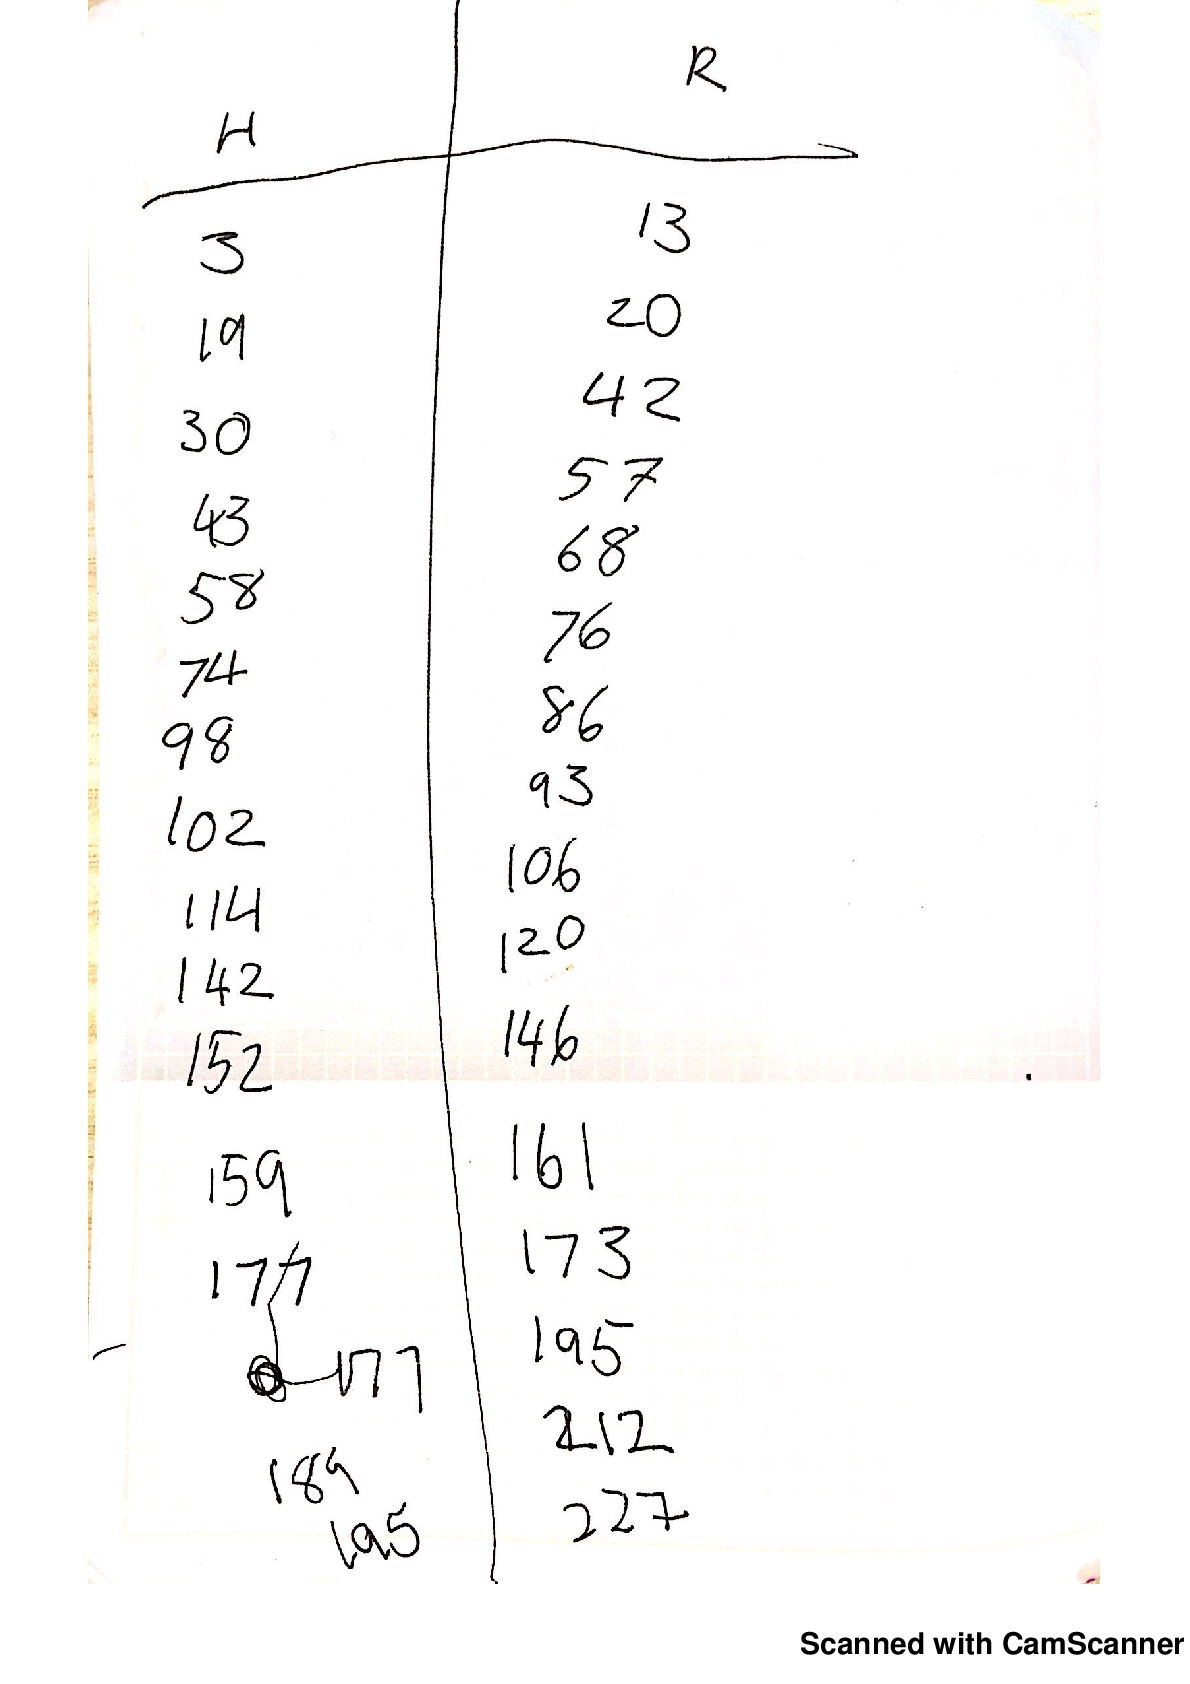 H R
3 13
19 20
30 42
43 57
58 68
74 76
98 86
102 93
114 106
142 120
152 146
159 161
177 173
177 195
189 212
195 227
Scanned with CamScanner